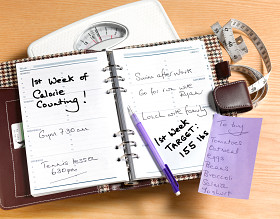 1st Week of
Calorie
Counting!
Gym 7:30am
Tennis lesson
6:30pm
Swim after work
Go for run with
Ryan
Lunch with family
1st Week
TARGET:
155 lbs
To buy
Tomatoes
Oatmeal
Eggs
Beans
Broccoli
Yoghurt